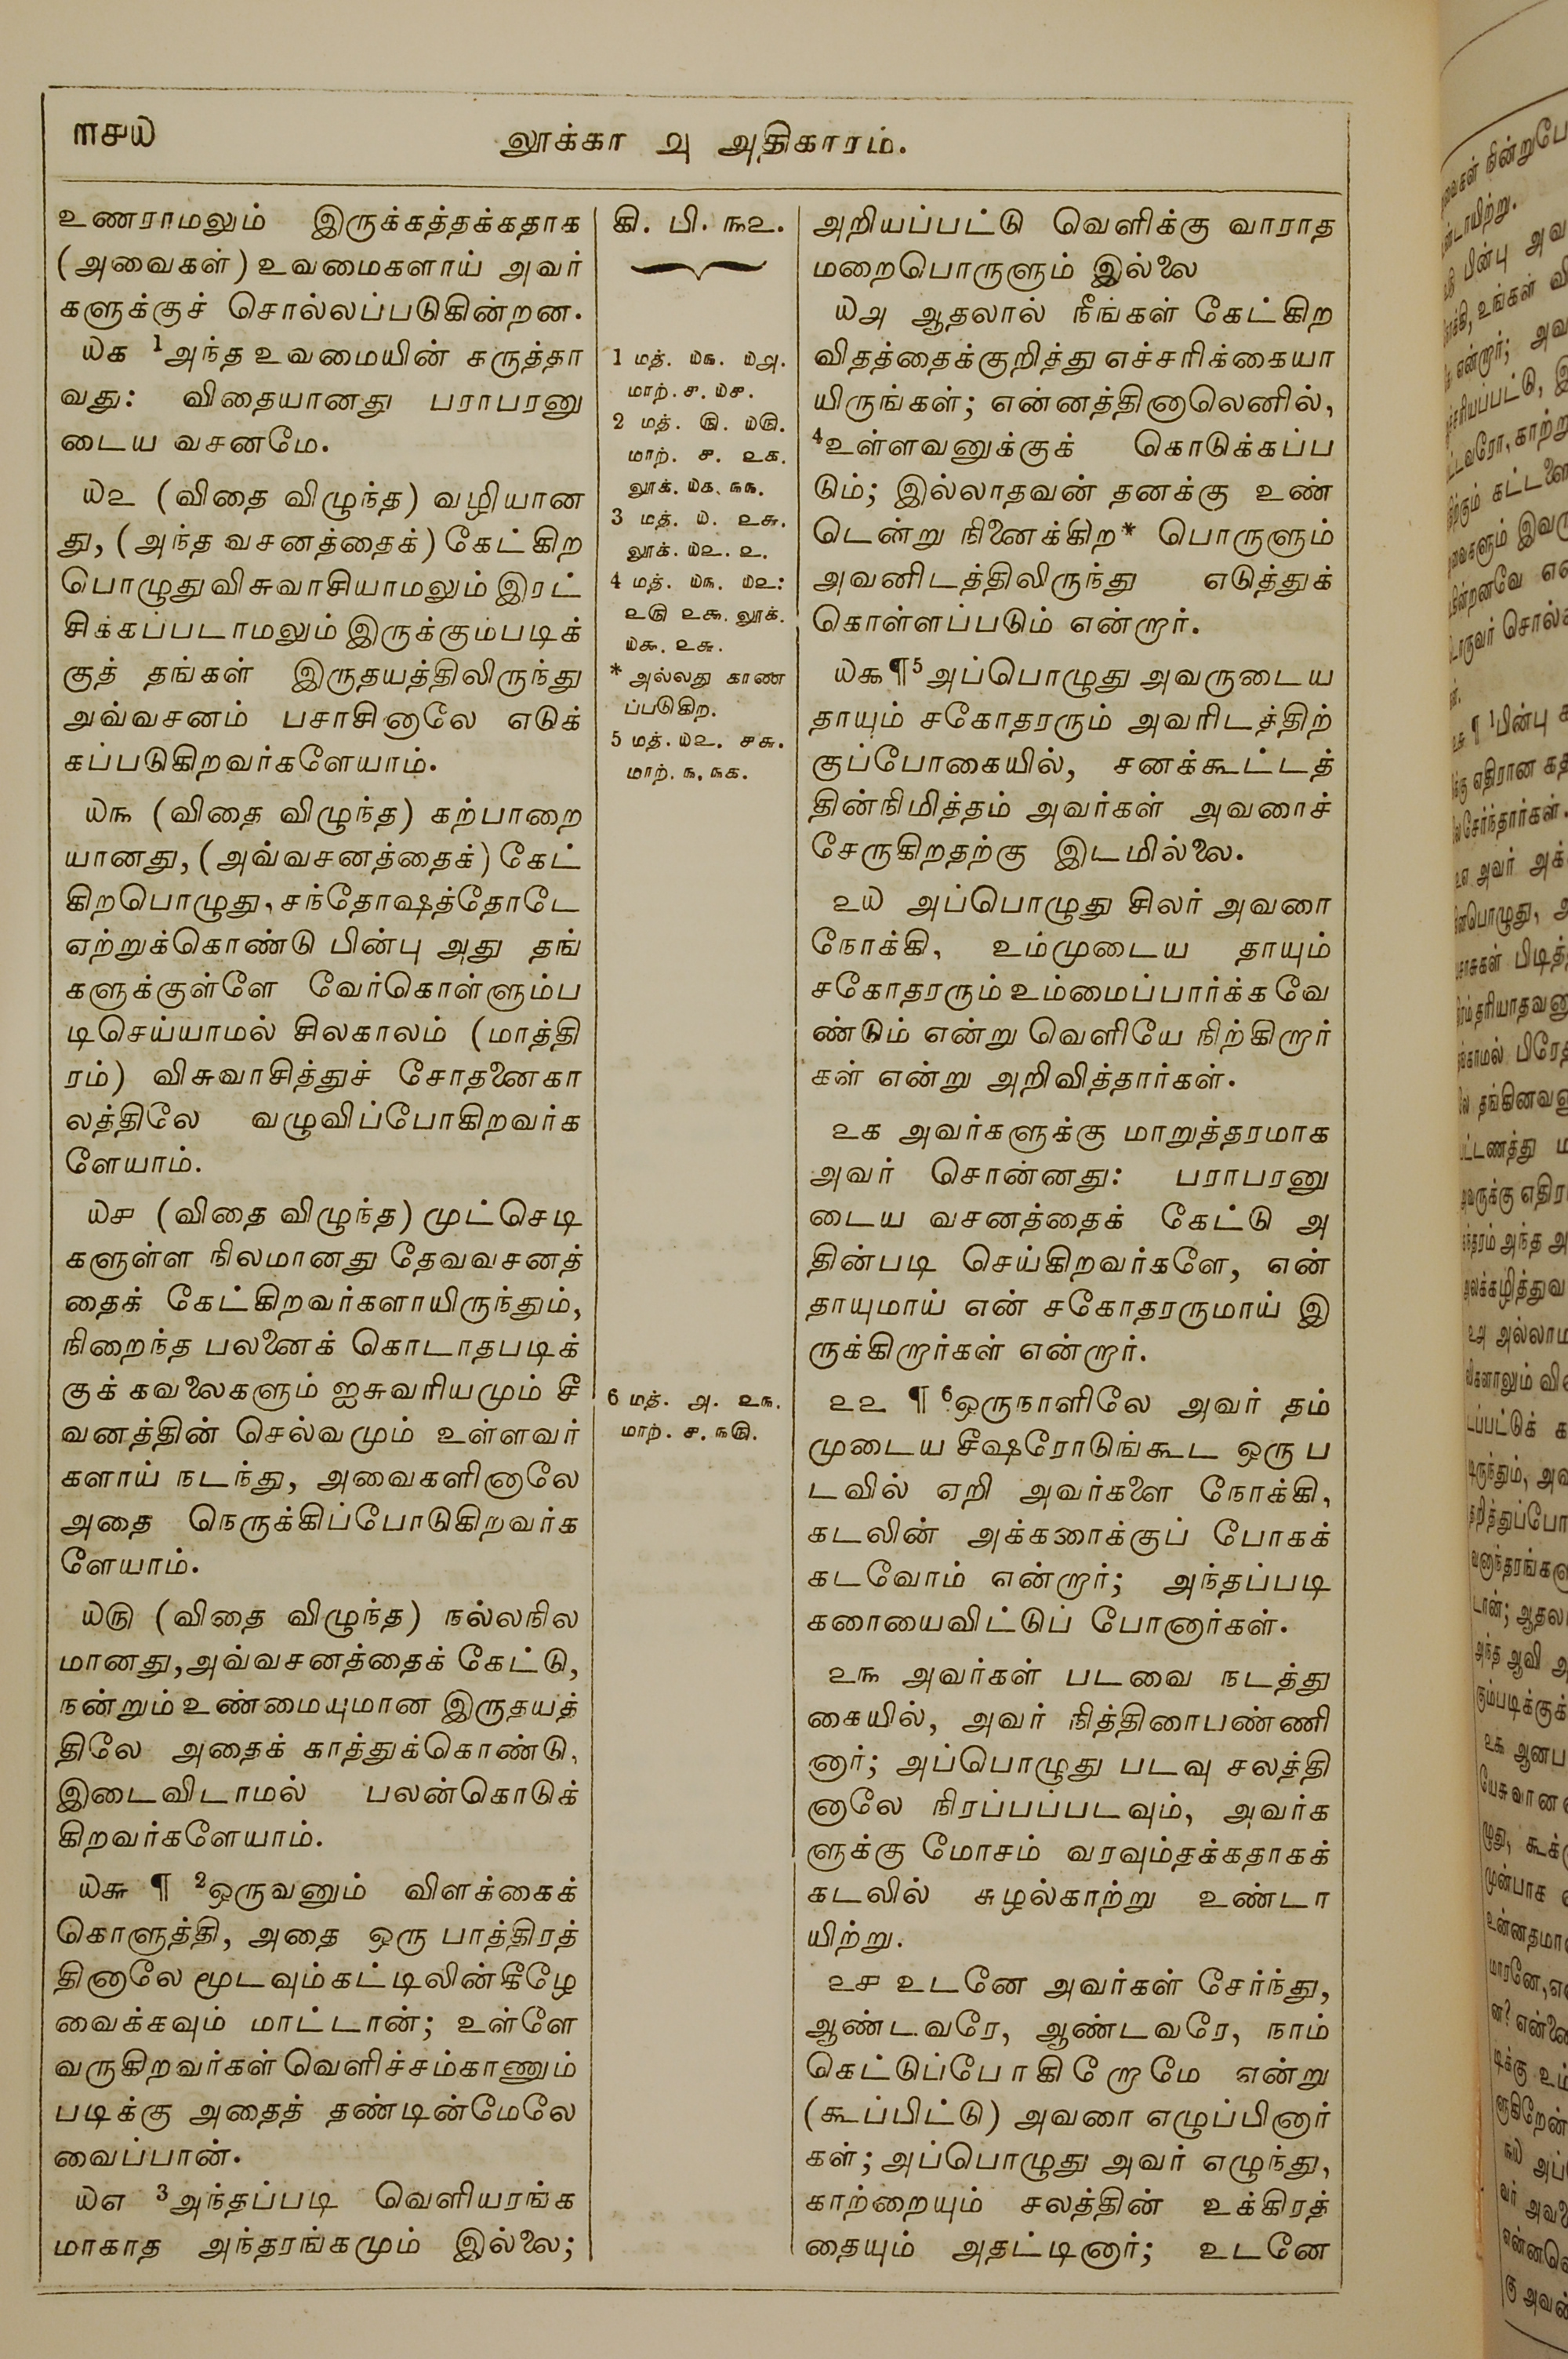 ௱௪௰
லூக்கா ௮ அதிகாரம்.
உணராமலும் இருக்கத்தக்கதாக
(அவைகள்) உவமைகளாய் அவர்
களுக்குச் சொல்லப்படுகின்றன.
௰௧ 1அந்த உவமையின் கருத்தா
வது: விதையானது பராபரனு
டைய வசனமே.
௰௨ (விதை விழுந்த) வழியான
து, (அந்த வசனத்தைக்) கேட்கிற
பொழுது விசுவாசியாமலும் இரட்
சிக்கப்படாமலும் இருக்கும்படிக்
குத் தங்கள் இருதயத்திலிருந்து
அவ்வசனம் பசாசினாலே எடுக்
கப்படுகிறவர்களேயாம்.
௰௩ (விதை விழுந்த) கற்பாறை
யானது, (அவ்வசனத்தைக்) கேட்
கிறபொழுது, சந்தோஷத்தோடே
ஏற்றுக்கொண்டு பின்பு அது தங்
களுக்குள்ளே வேர்கொள்ளும்ப
டிசெய்யாமல் சிலகாலம் (மாத்தி
ரம்) விசுவாசித்துச் சோதனைகா
லத்திலே வழுவிப்போகிறவர்க
ளேயாம்.
௰௪ (விதை விழுந்த) முட்செடி
களுள்ள நிலமானது தேவவசனத்
தைக் கேட்கிறவர்களாயிருந்தும்,
நிறைந்த பலனைக் கொடாதபடிக்
குக் கவலைகளும் ஐசுவரியமும் சீ
வனத்தின் செல்வமும் உள்ளவர்
களாய் நடந்து, அவைகளினாலே
அதை நெருக்கிப்போடுகிறவர்க
ளேயாம்.
௰௫ (விதை விழுந்த) நல்லநில
மானது, அவ்வசனத்தைக் கேட்டு,
நன்றும் உண்மையுமான இருதயத்
திலே அதைக் காத்துக்கொண்டு,
இடைவிடாமல் பலன்கொடுக்
கிறவர்களேயாம்.
௰௬ ¶ 2ஒருவனும் விளக்கைக்
கொளுத்தி, அதை ஒரு பாத்திரத்
தினாலே மூடவும் கட்டிலின்கீழே
வைக்கவும் மாட்டான்; உள்ளே
வருகிறவர்கள் வெளிச்சம்காணும்
படிக்கு அதைத் தண்டின்மேலே
வைப்பான்.
௰௭ 3அந்தப்படி வெளியரங்க
மாகாத அந்தரங்கமும் இல்லை;
கி. பி. ௩௨.
1 மத். ௰௩. ௰௮.
மாற். ௪. ௰௪.
2 மத். ௫. ௰௫.
மாற். ௪. ௨௧.
லூக். ௰௧. ௩௩.
3 மத். ௰. ௨௬.
லூக். ௰௨. ௨.
4 மத். ௰௩. ௰௨:
௨௫ ௨௯. லூக்.
௰௯. ௨௬.
* அல்லது காண
ப்படுகிற.
5 மத். ௰௨. ௪௬.
மாற். ௩. ௩௧.
6 மத். ௮. ௨௩.
மாற். ௪. ௩௫.
அறியப்பட்டு வெளிக்கு வாராத
மறைபொருளும் இல்லை
௰௮ ஆதலால் நீங்கள் கேட்கிற
விதத்தைக்குறித்து எச்சரிக்கையா
யிருங்கள்; என்னத்தினாலெனில்,
4உள்ளவனுக்குக் கொடுக்கப்ப
டும்; இல்லாதவன் தனக்கு உண்
டென்று நினைக்கிற* பொருளும்
அவனிடத்திலிருந்து எடுத்துக்
கொள்ளப்படும் என்றார்.
௰௯ ¶ 5அப்பொழுது அவருடைய
தாயும் சகோதரரும் அவரிடத்திற்
குப்போகையில், சனக்கூட்டத்
தின்நிமித்தம் அவர்கள் அவரைச்
சேருகிறதற்கு இடமில்லை.
௨௰ அப்பொழுது சிலர் அவரை
நோக்கி, உம்முடைய தாயும்
சகோதரரும் உம்மைப்பார்க்க வே
ண்டும் என்று வெளியே நிற்கிறார்
கள் என்று அறிவித்தார்கள்.
௨௧ அவர்களுக்கு மாறுத்தரமாக
அவர் சொன்னது: பராபரனு
டைய வசனத்தைக் கேட்டு அ
தின்படி செய்கிறவர்களே, என்
தாயுமாய் என் சகோதரருமாய் இ
ருக்கிறார்கள் என்றார்.
௨௨ ¶ 6ஒருநாளிலே அவர் தம்
முடைய சீஷரோடுங்கூட ஒரு ப
டவில் ஏறி அவர்களை நோக்கி,
கடலின் அக்கரைக்குப் போகக்
கடவோம் என்றார்; அந்தப்படி
கரையைவிட்டுப் போனார்கள்.
௨௩ அவர்கள் படவை நடத்து
கையில், அவர் நித்திரைபண்ணி
னார்; அப்பொழுது படவு சலத்தி
னாலே நிரப்பப்படவும், அவர்க
ளுக்கு மோசம் வரவும்தக்கதாகக்
கடலில் சுழல்காற்று உண்டா
யிற்று.
௨௪ உடனே அவர்கள் சேர்ந்து,
ஆண்டவரே, ஆண்டவரே, நாம்
கெட்டுப்போகிறோமே என்று
(கூப்பிட்டு) அவரை எழுப்பினார்
கள்; அப்பொழுது அவர் எழுந்து,
காற்றையும் சலத்தின் உக்கிரத்
தையும் அதட்டினார்; உடனே